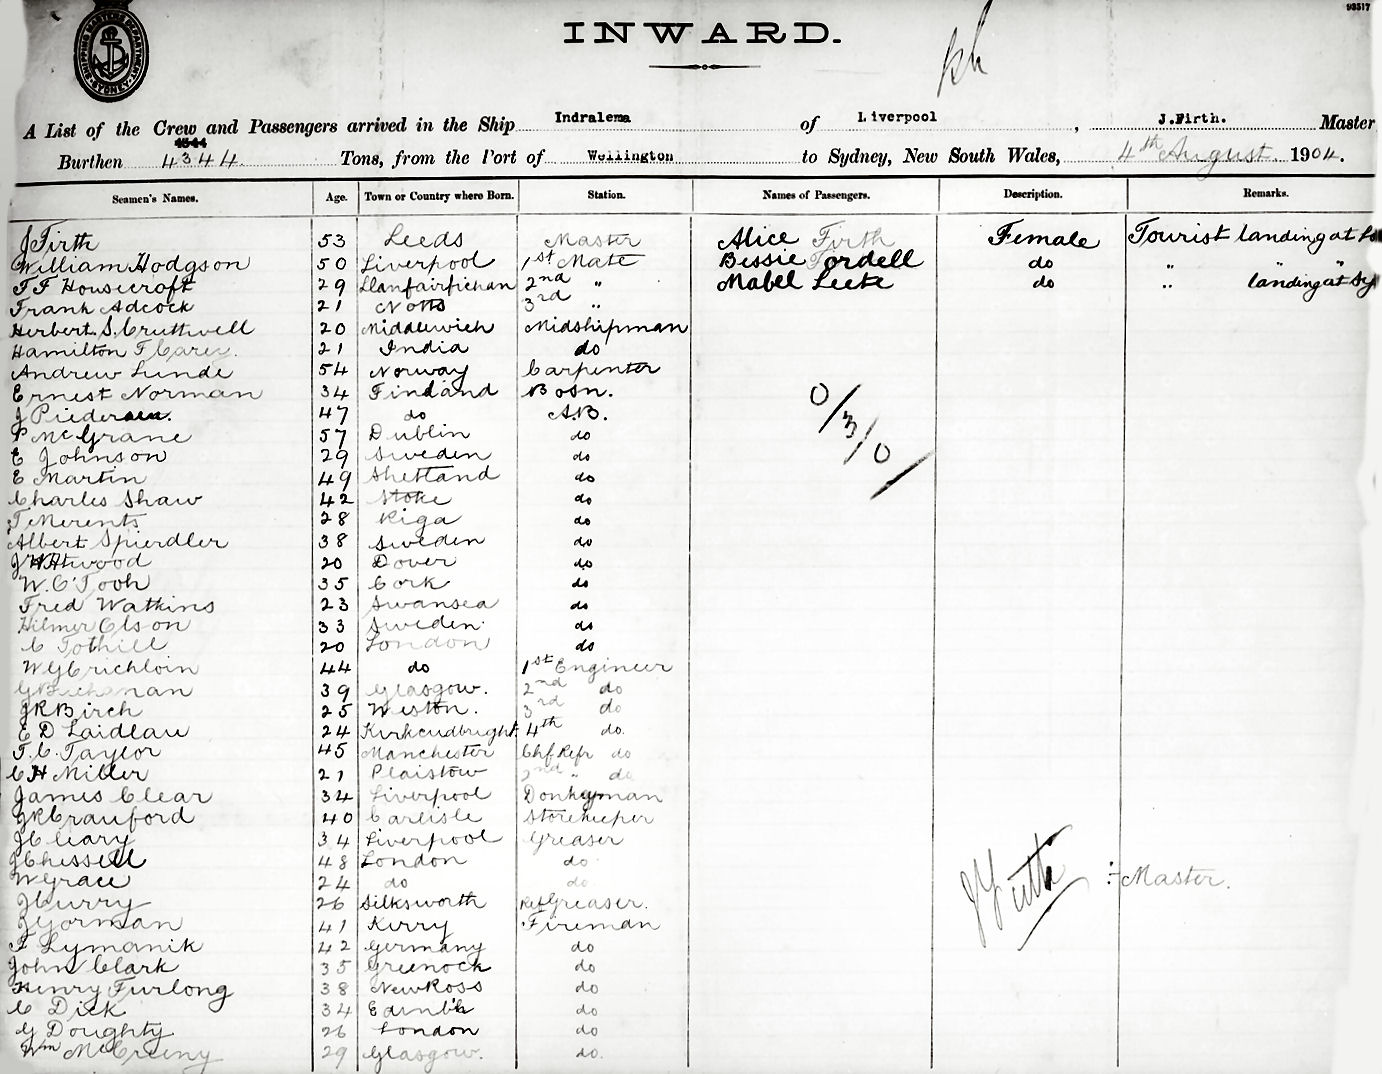 93517
INWARD.
A List of the Crew and Passengers arrived in the Ship Indralema of Liverpool, J.Firth. Master
4344
Burthen 4344. Tons, from the Port of Wellington to Sydney, New South Wales, 4th August 1904.
Seamen's Names. Age. Town or Country where Born. Station. Names of Passengers. Description. Remarks.
J Firth 53 Leeds Master Alice Firth Female Tourist landing at
William Hodgson 50 Liverpool 1st Mate Bessie Tordell do " "
F F Housecroft 29 Llanfairfichan 2nd " Mabel Leete do " landing at Sy
Frank Adcock 21 Notts 3rd "
Herbert S. Cruttwell 20 Middlewich Midshipman
Hamilton F Carey. 21 India do
Andrew Lunde 54 Norway Carpenter
Ernest Norman 34 Finland Bosn.
J Piedersen. 47 do A.B.
P McGrane 57 Dublin do
E Johnson 29 Sweden do
E Martin 49 Shetland do
Charles Shaw 42 Stoke do
T Merents 28 Riga do
Albert Spierdler 38 Sweden do
J W Atwood 20 Dover do
W. O'Tooh 35 Cork do
Fred Watkins 23 Swansea do
Hilmer Olson 33 Sweden do
C Tothill 20 London do
W G Crichloin 44 do 1st Engineer
G Buchanan 39 Glasgow. 2nd do
J R Birch 25 Weston. 3rd do
E D Laidlau 24 Kirkcudbright 4th do.
T. C. Taylor 45 Manchester Chf Refr do
C H Miller 21 Plaistow 2nd " do
James Clear 34 Liverpool Donkeyman
J R Crauford 40 Carlisle Storekeeper
J Cleary 34 Liverpool Greaser
J Chissell 48 London do
W Grace 24 do do
J Curry 26 Silksworth Ref Greaser.
J Gorman 41 Kerry Fireman
F Lymanik 42 Germany do
John Clark 35 Greenock do
Henry Furlong 38 New Ross do
C Dick 34 Edinb'h do
G Doughty 26 London do
Wm McCreeny 29 Glasgow. do.
0/3/0/
J Firth :- Master.